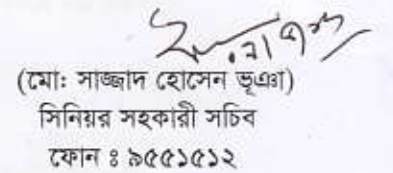 (মোঃ সাজ্জাদ হোসেন ভূঞা)
সিনিয়র সহকারী সচিব
ফোন ঃ ৯৫৫১৫১২